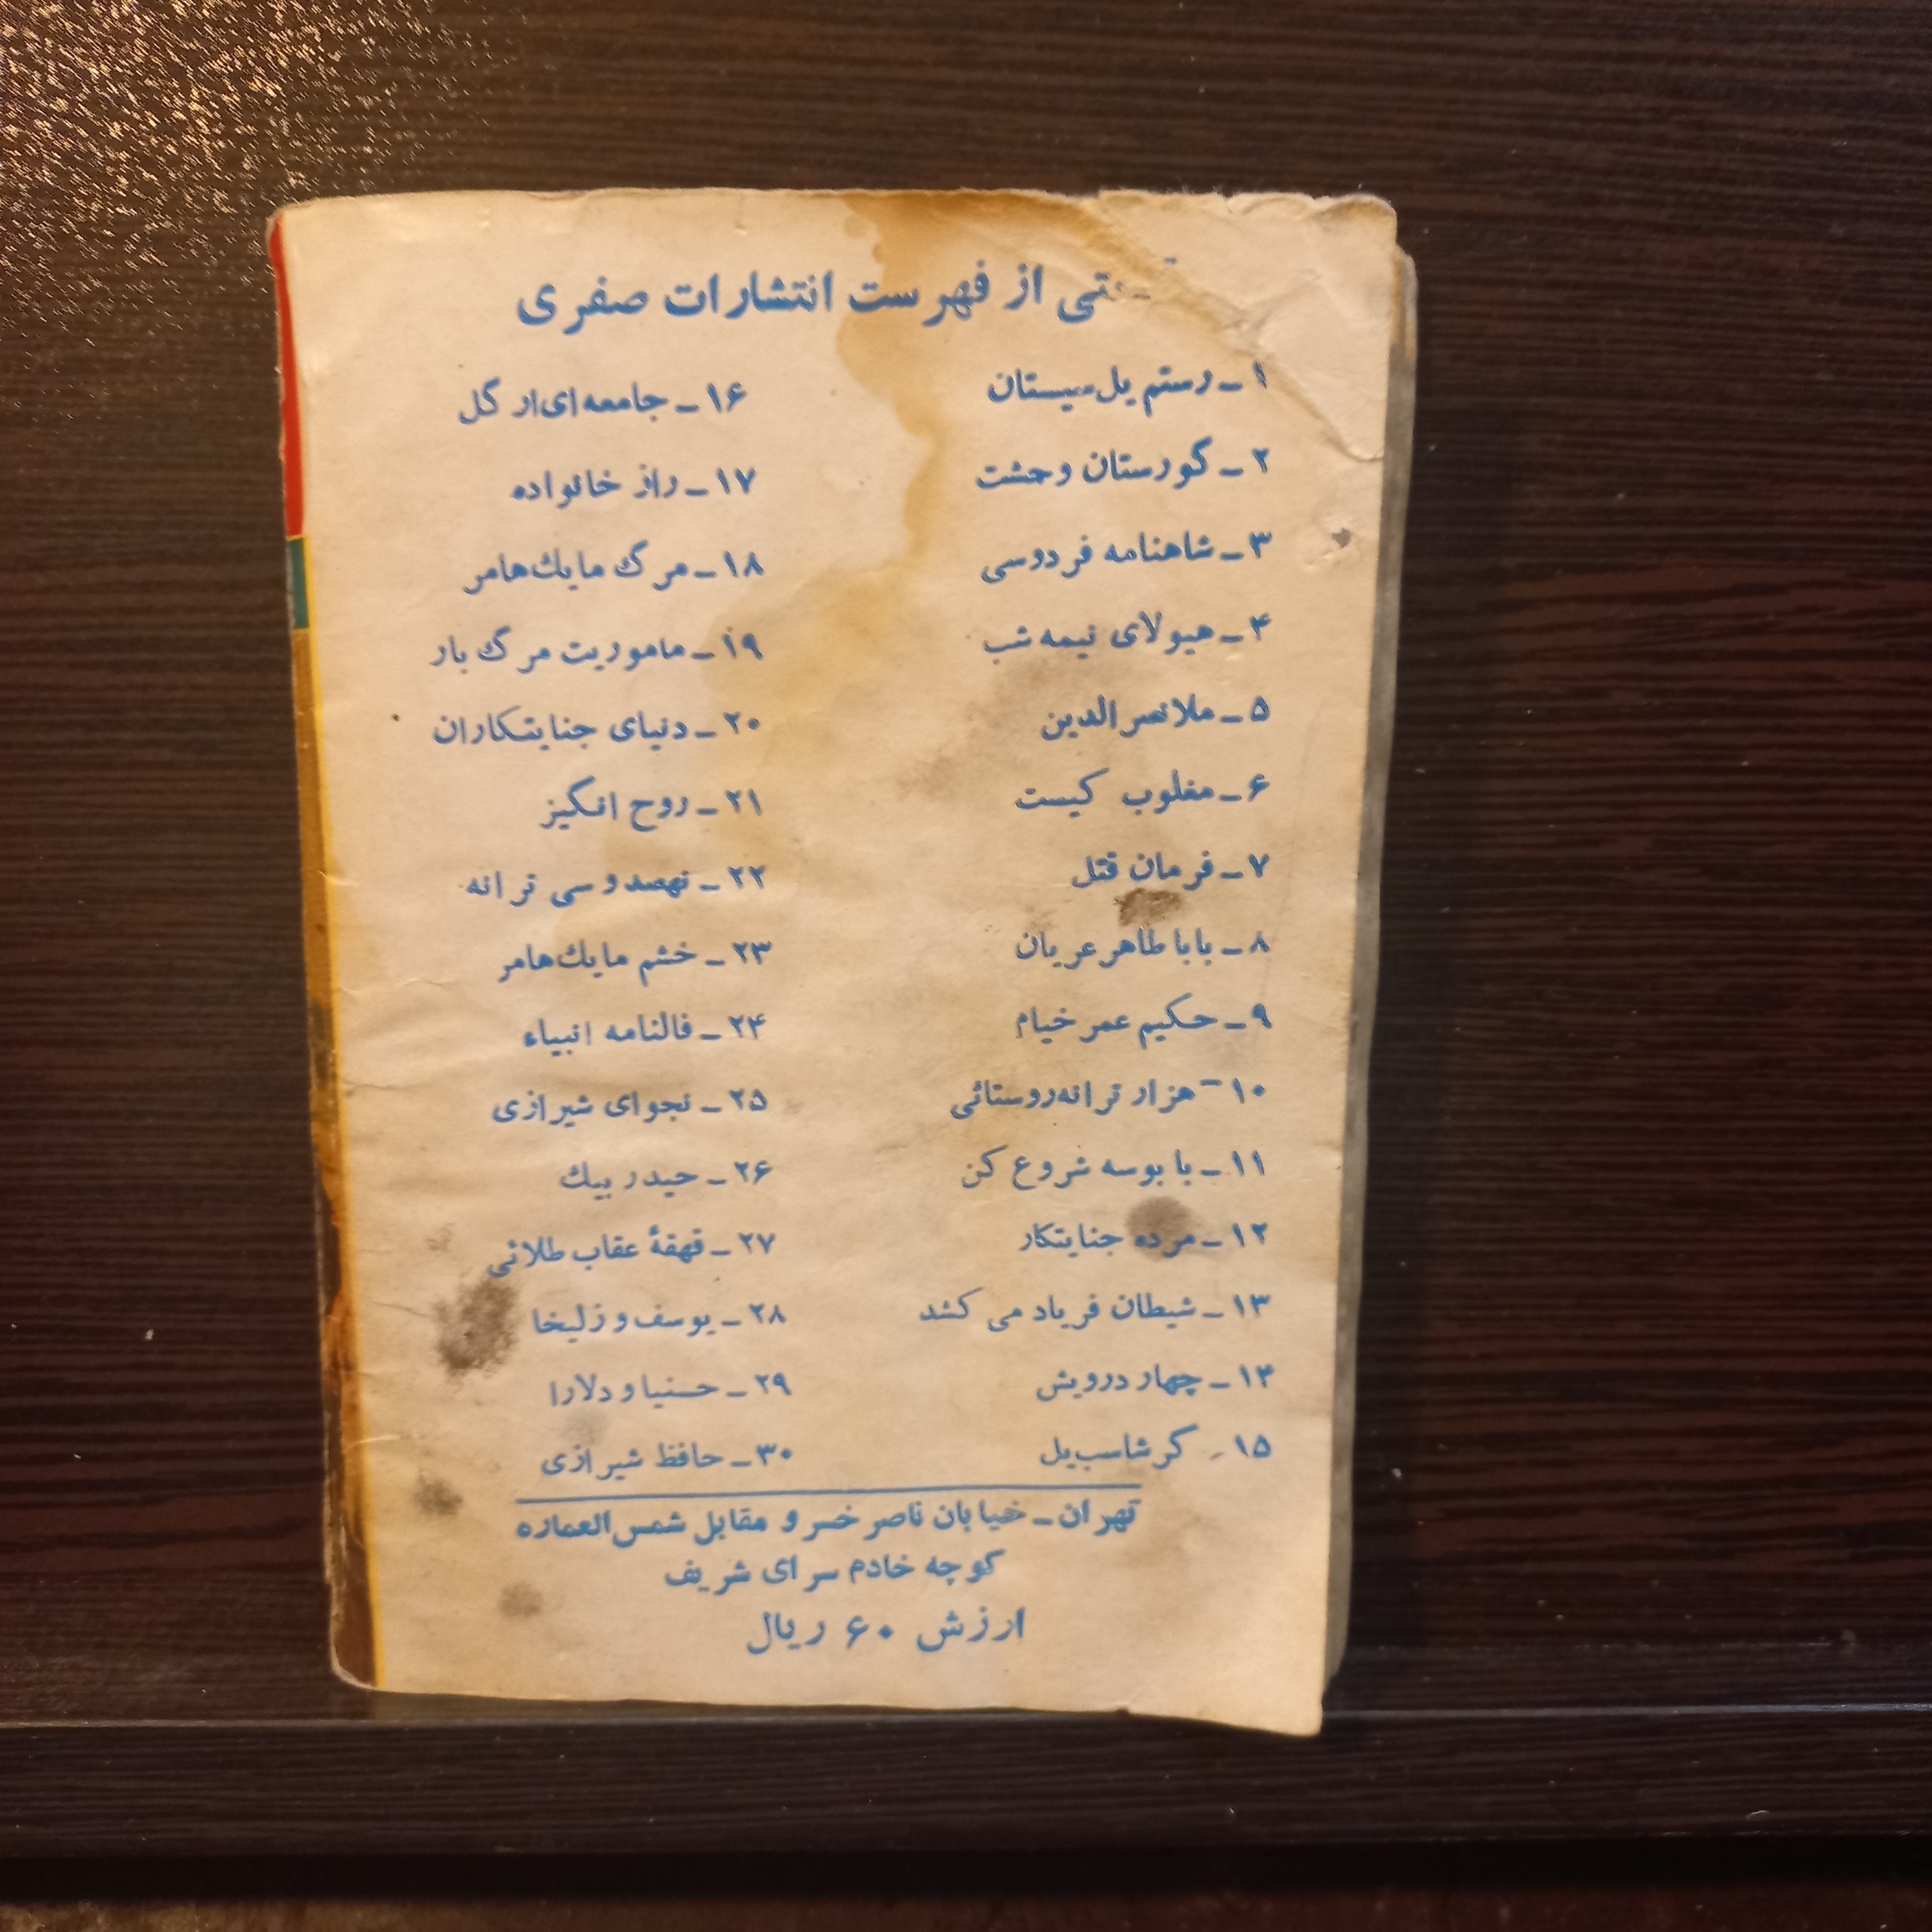 از فهرست انتشارات صفری
۱ - رستم یل سیستان
۲ - گورستان وحشت
۳ - شاهنامه فردوسی
۴ - هیولای نیمه شب
۵ - ملانصرالدین
۶ - مغلوب کیست
۷ - فرمان قتل
۸ - باباطاهر عریان
۹ - حکیم عمر خیام
۱۰ - هزار ترانه روستائی
۱۱ - با بوسه شروع کن
۱۲ - مرده جنایتکار
۱۳ - شیطان فریاد می کشد
۱۴ - چهار درویش
۱۵ - گرشاسب یل
۱۶ - جامعه ای از گل
۱۷ - راز خانواده
۱۸ - مرگ مایك هامر
۱۹ - ماموریت مرگ بار
۲۰ - دنیای جنایتکاران
۲۱ - روح انگیز
۲۲ - نهصد و سی ترانه
۲۳ - خشم مایك هامر
۲۴ - فالنامه انبیاء
۲۵ - نجوای شیرازی
۲۶ - حیدر بیك
۲۷ - قهقهٔ عقاب طلائی
۲۸ - یوسف و زلیخا
۲۹ - حسنیا و دلارا
۳۰ - حافظ شیرازی
تهران - خیابان ناصر خسرو مقابل شمس العماره
کوچه خادم سرای شریف
ارزش ۶۰ ریال